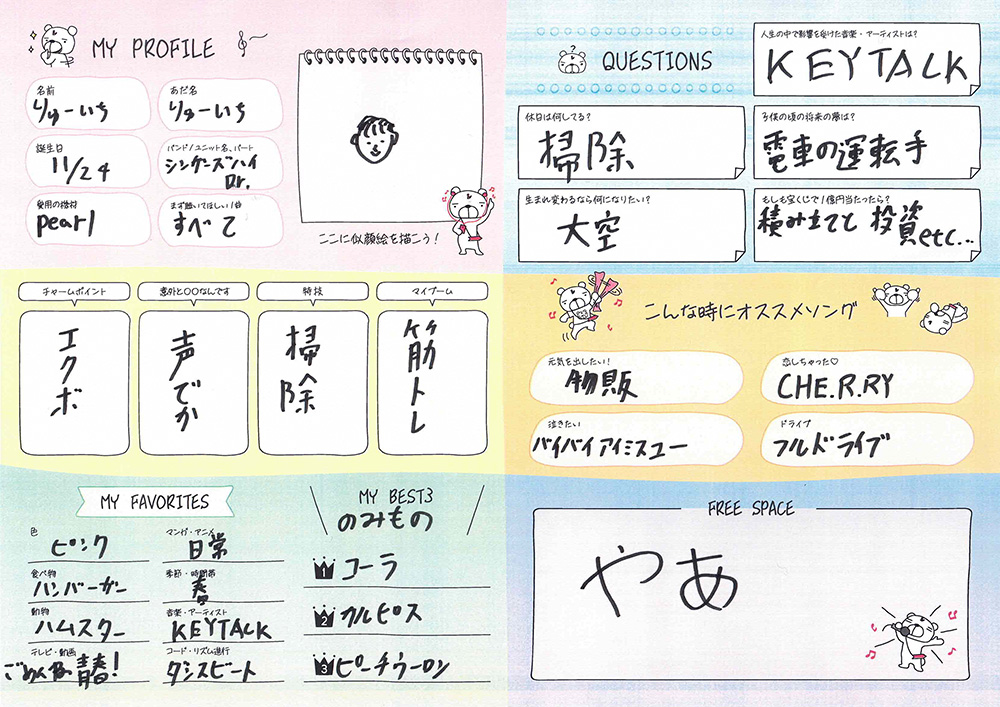 MY PROFILE
名前
りゅーいち
あだ名
りゅーいち
誕生日
11/24
バンド/ユニット名、パート
シンガーズハイ
Dr.
愛用の機材
pearl
まず聴いてほしい1曲
すべて
ここに似顔絵を描こう!
チャームポイント
エクボ
意外と○○なんです
声でか
特技
掃除
マイブーム
筋トレ
MY FAVORITES
色
ピンク
マンガ・アニメ
日常
食べ物
ハンバーガー
季節・時間帯
春
動物
ハムスター
音楽・アーティスト
KEYTALK
テレビ・動画
青春!
コード・リズム進行
ダンスビート
MY BEST3
のみもの
1 コーラ
2 カルピス
3 ピーチウーロン
QUESTIONS
人生の中で影響を受けた音楽・アーティストは?
KEYTALK
休日は何してる?
掃除
子供の頃の将来の夢は?
電車の運転手
生まれ変わるなら何になりたい?
大空
もしも宝くじで1億円当たったら?
積み立てと 投資etc...
こんな時にオススメソング
元気を出したい!
物販
恋しちゃった♡
CHE.R.RY
泣きたい
バイバイアイミスユー
ドライブ
フルドライブ
FREE SPACE
やあ